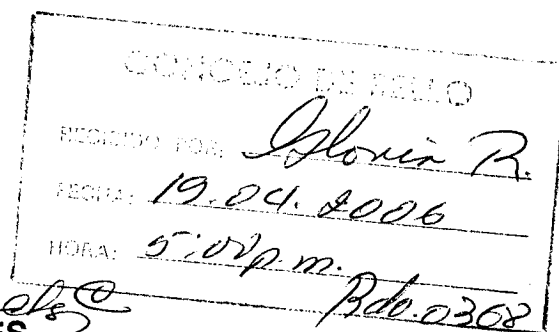 CONCEJO DE BELLO
RECIBIDO POR: Gloria R.
FECHA: 19.04.2006
HORA: 5:00 p.m.
Rdo. 0368